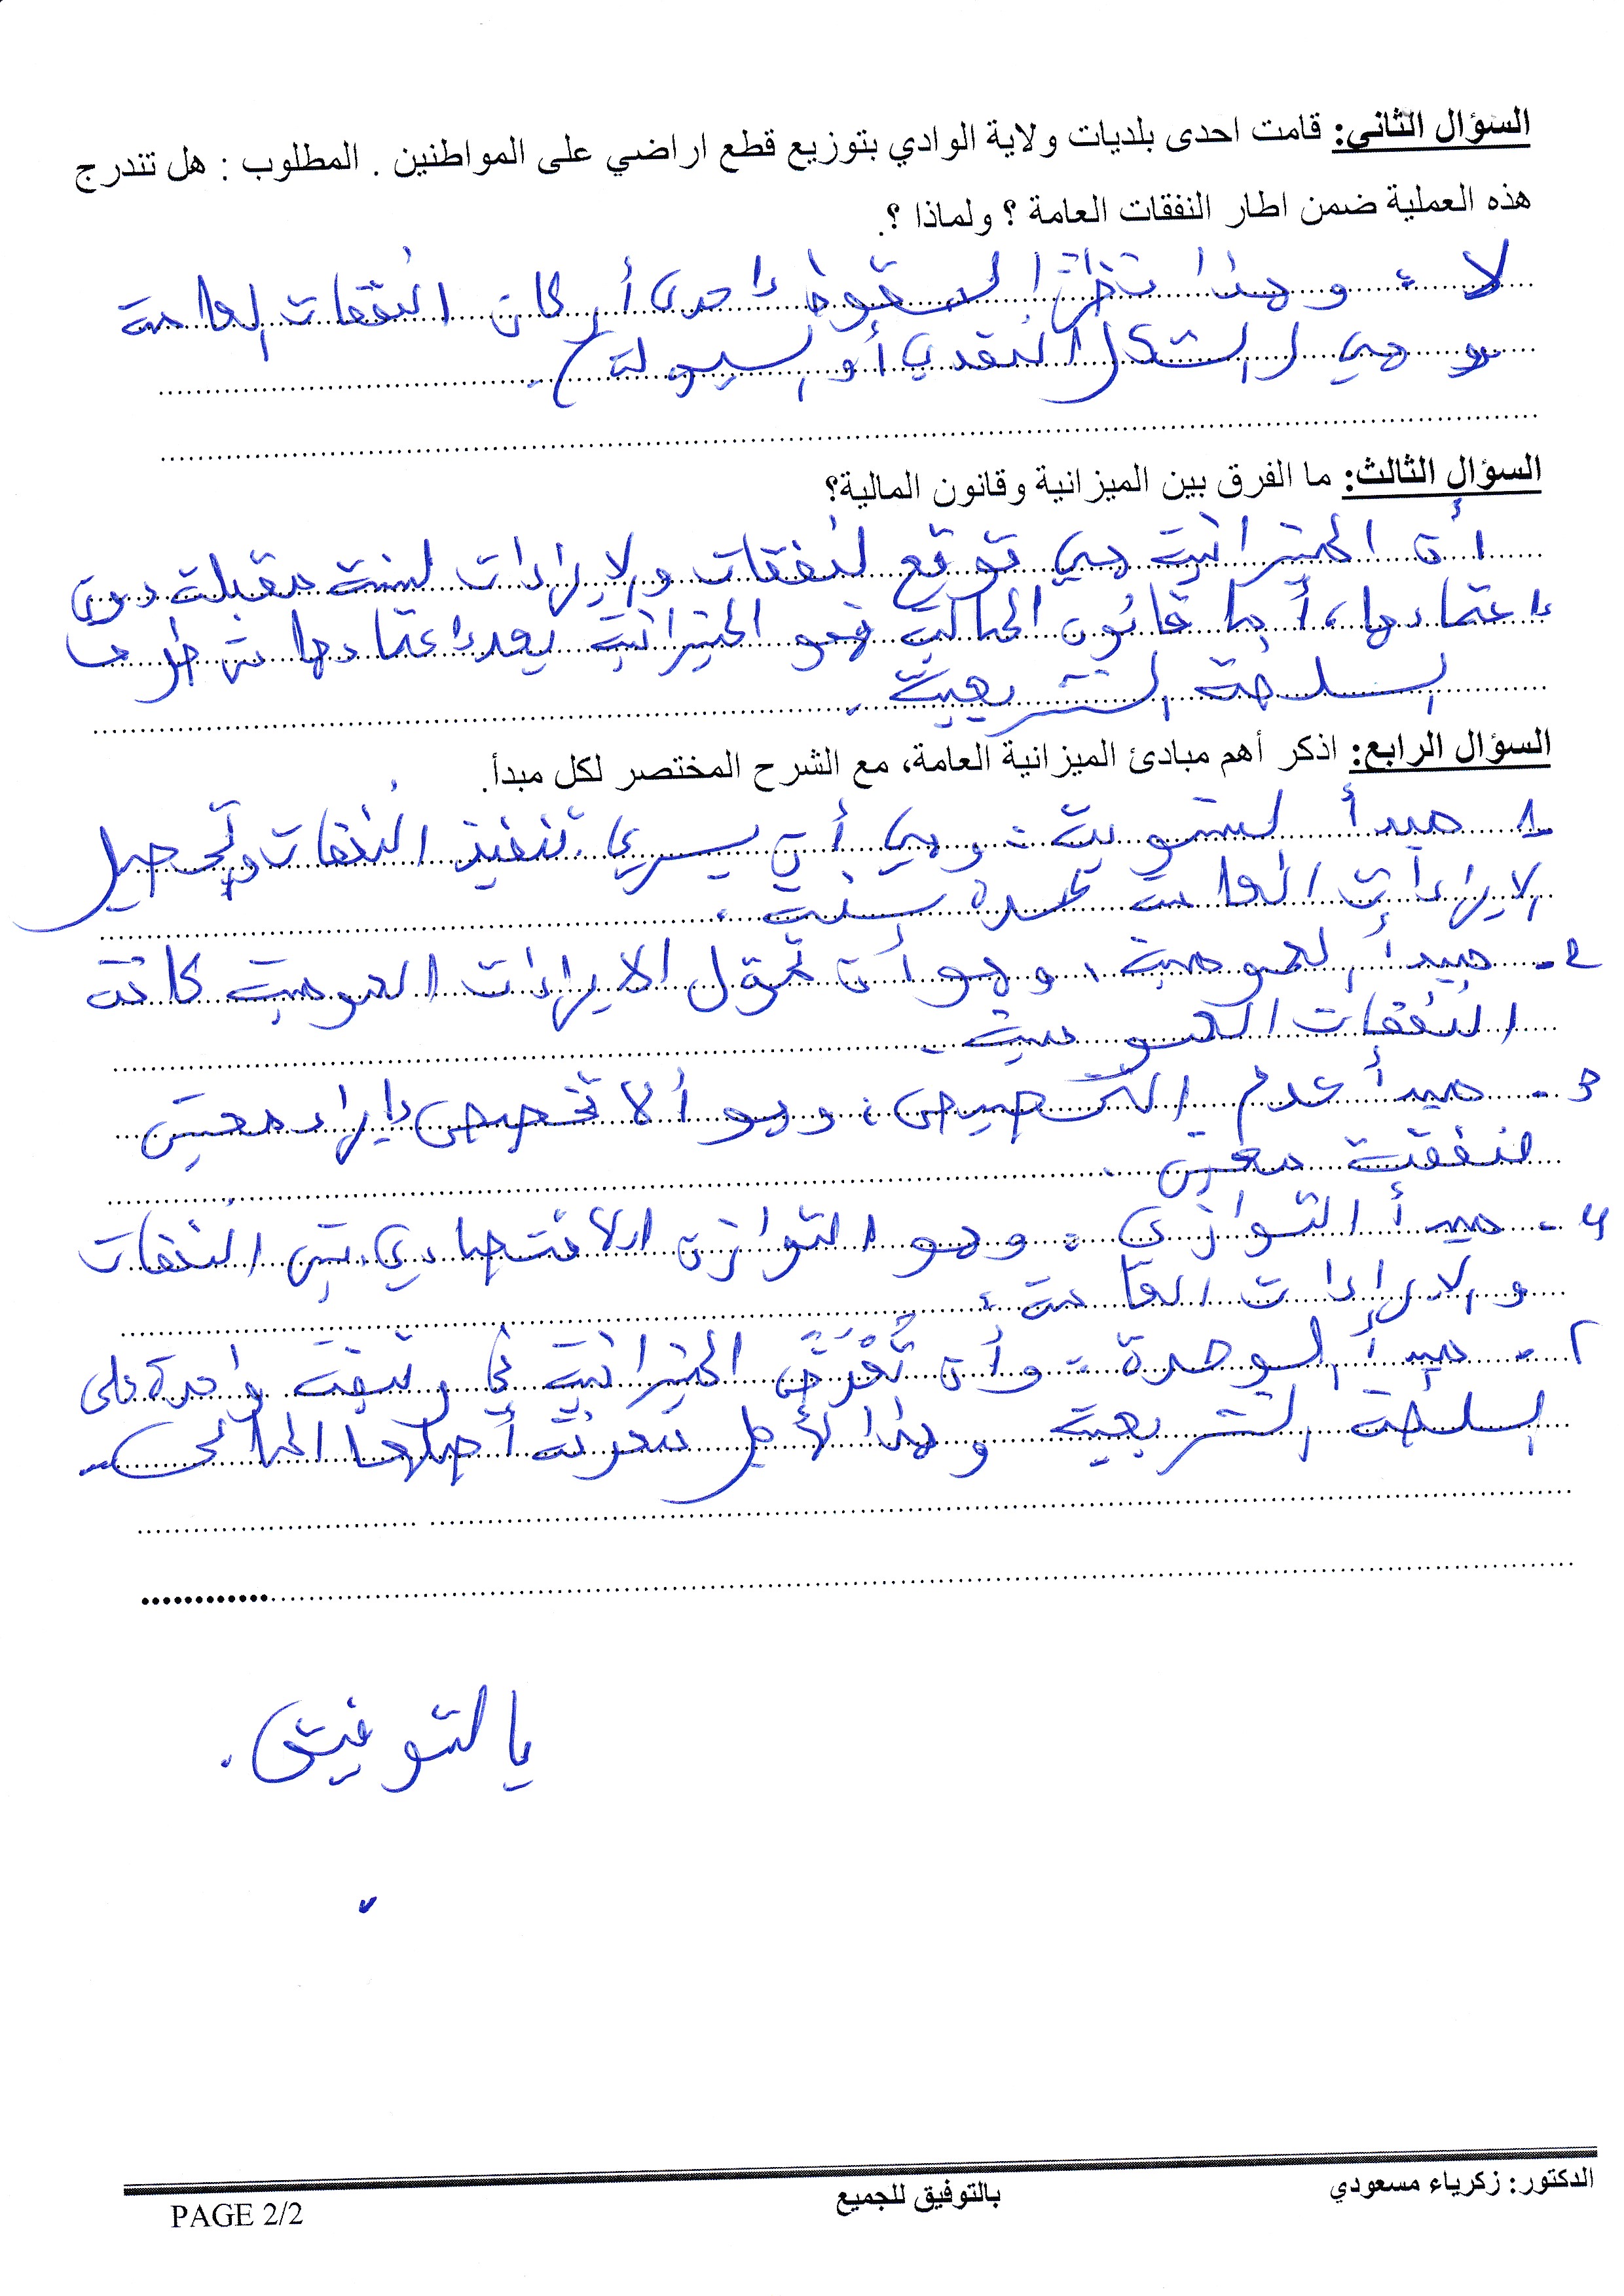 السؤال الثاني: قامت احدى بلديات ولاية الوادي بتوزيع قطع اراضي على المواطنين . المطلوب : هل تندرج
هذه العملية ضمن اطار النفقات العامة ؟ ولماذا ؟.
لا ، وهذا نظرًا لسقوط إحدى أركان النفقات العامة
وهي (الشكل النقدي أو السيولة).
السؤال الثالث: ما الفرق بين الميزانية وقانون المالية؟
أن الميزانية هي توقع لنفقات والإيرادات لسنة مقبلة دون
إعتمادها، أما قانون المالية فهو الميزانية بعد إعتمادها من طرف
السلطة التشريعية.
السؤال الرابع: اذكر أهم مبادئ الميزانية العامة، مع الشرح المختصر لكل مبدأ.
1- مبدأ السنوية: وهي أن يسري تنفيذ النفقات وتحصيل
الإيرادات العامة لمدة سنة.
2- مبدأ العمومية، وهو أن تمول الايرادات العمومية كافة
النفقات العمومية.
3- مبدأ عدم التخصيص: وهو ألا تخصص إيراد معين
لنفقة معين.
4- مبدأ التوازن: وهو التوازن الاقتصادي بين النفقات
والايرادات العامة.
- مبدأ الوحدة: وأن تُعْرَضَ الميزانية في وثيقة واحدة على
السلطة التشريعية وهذا لأجل معرفة المالي
بالتوفيق.
الدكتور: زكرياء مسعودي
بالتوفيق للجميع
PAGE 2/2